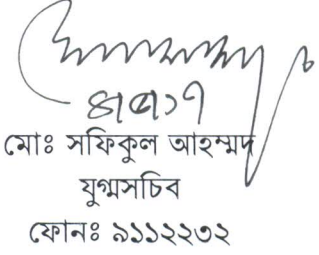 মোঃ সফিকুল আহম্মদ
যুগ্মসচিব
ফোনঃ ৯১১২২৩২